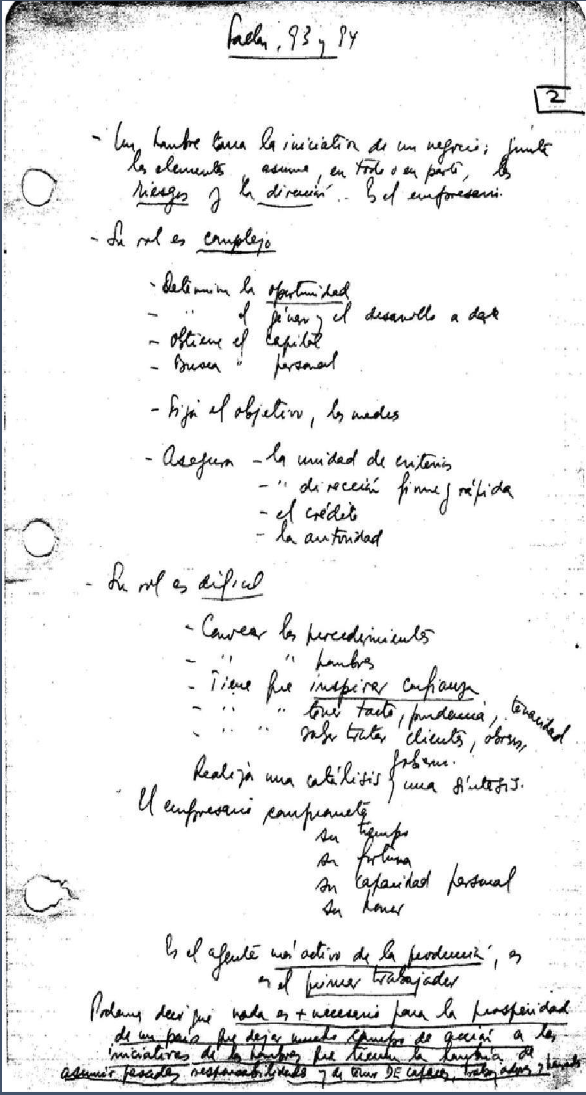 , 93 y 94
2
- Un hombre toma la iniciativa de un negocio; junta
los elementos, asume, en todo o en parte, los
riesgos y la dirección. Es el empresario.
- Su rol es complejo
- Determina la oportunidad
- " el género y el desarrollo a darle
- Obtiene el capital
- Busca " personal
- Fija el objetivo, los medios
- Asegura - la unidad de criterios
- " dirección firme y rápida
- el crédito
- la autoridad
- Su rol es difícil
- Conocer los procedimientos
- " " hombres
- Tiene que inspirar confianza
- " " tener tacto, prudencia, tenacidad
- " " saber tratar clientes, obreros,
gobierno.
Realiza una catálisis y una síntesis.
El empresario compromete
su tiempo
su fortuna
su capacidad personal
su honor
Es el agente más activo de la producción, es
es el primer trabajador
Podemos decir que nada es + necesario para la prosperidad
de un país que dejar mucho campo de acción a las
iniciativas de los hombres que tienen la hombría de
asumir pesadas responsabilidades y de ser DE capaces, trabajadores y